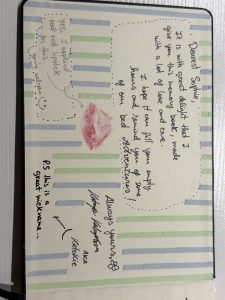 Dearest Sophie,
It is with great delight that I
give you this memory book, made
with a lot of love and care.
I hope it can fill your empty
hours and remind you of some
of our best Adventures!
Always yours,
AKA
Yes, I applied
red lipstick
for this
PS this is a
great nickname...